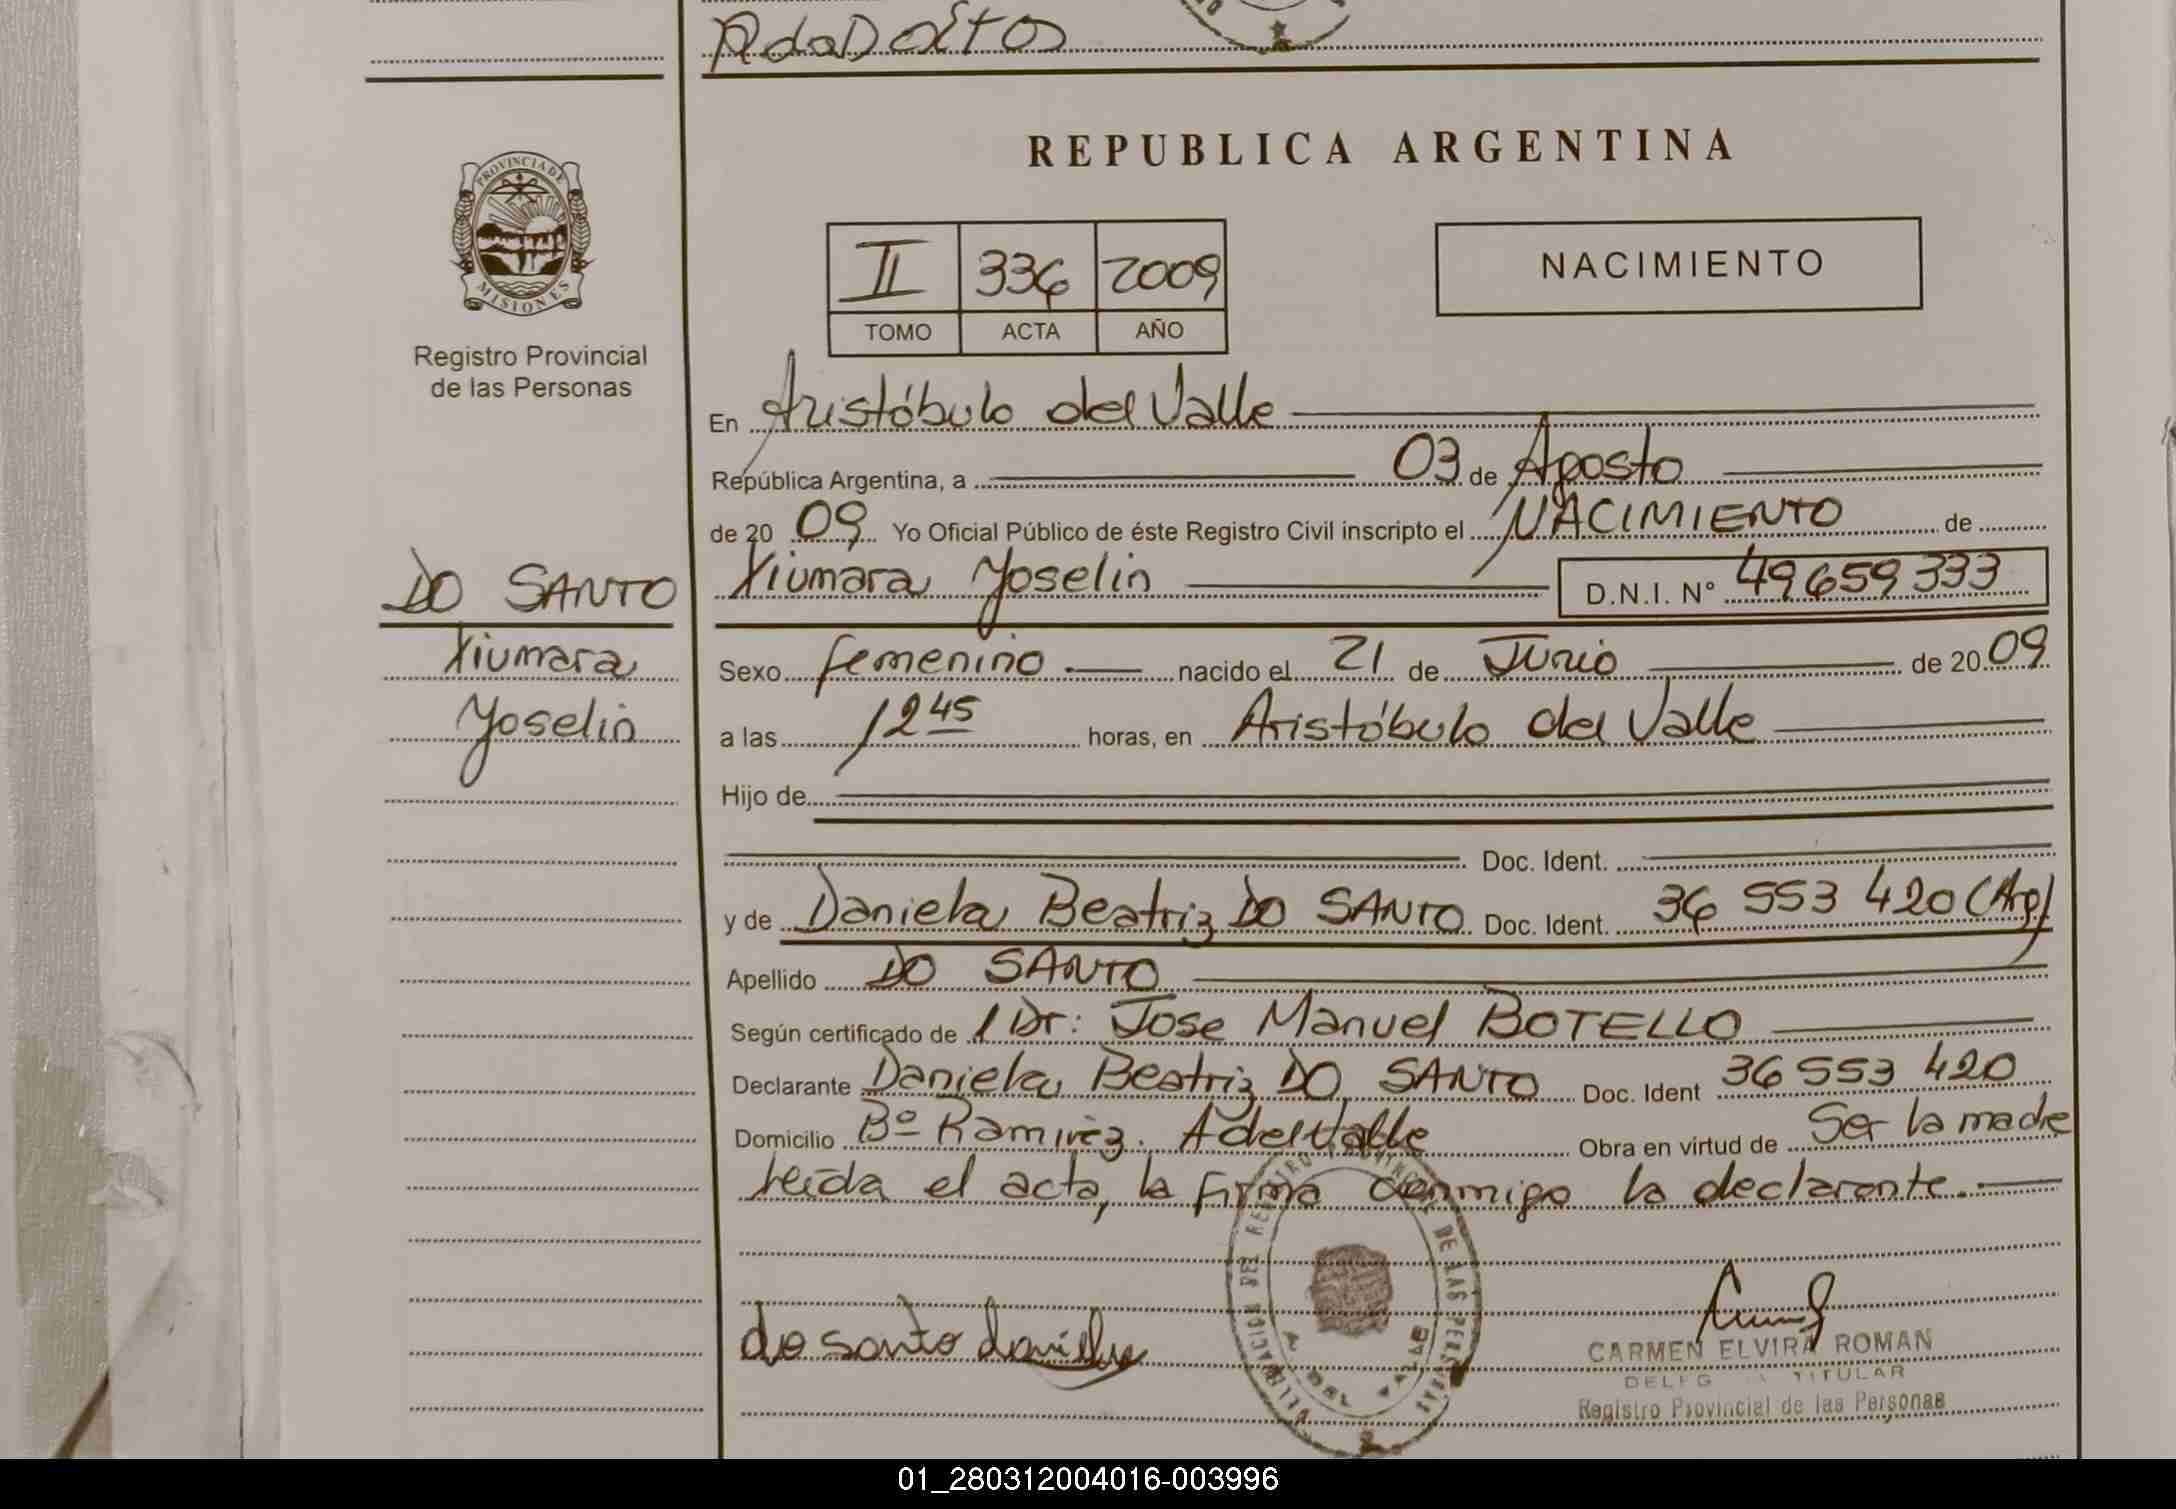 PROVINCIA DE
MISIONES
Registro Provincial
de las Personas
DO SANTO
Xiumara
Yoselin
REPUBLICA ARGENTINA
II 336 2009
TOMO ACTA AÑO
NACIMIENTO
En Aristóbulo del Valle
República Argentina, a 03 de Agosto
de 20 09 Yo Oficial Público de éste Registro Civil inscripto el NACIMIENTO de
Xiumara Yoselin D.N.I. Nº 49659333
Sexo femenino nacido el 21 de Junio de 20 09
a las 12 45 horas, en Aristóbulo del Valle
Hijo de
Doc. Ident.
y de Daniela Beatriz DO SANTO Doc. Ident. 36 553 420 (Arg)
Apellido DO SANTO
Según certificado de / Dr: Jose Manuel BOTELLO
Declarante Daniela Beatriz DO SANTO Doc. Ident 36 553 420
Domicilio Bº Ramirez. A del Valle Obra en virtud de Ser la madre
leída el acta, la firma conmigo la declarante.
do santo daniela
CARMEN ELVIRA ROMAN
TITULAR
Registro Provincial de las Personas
01_280312004016-003996